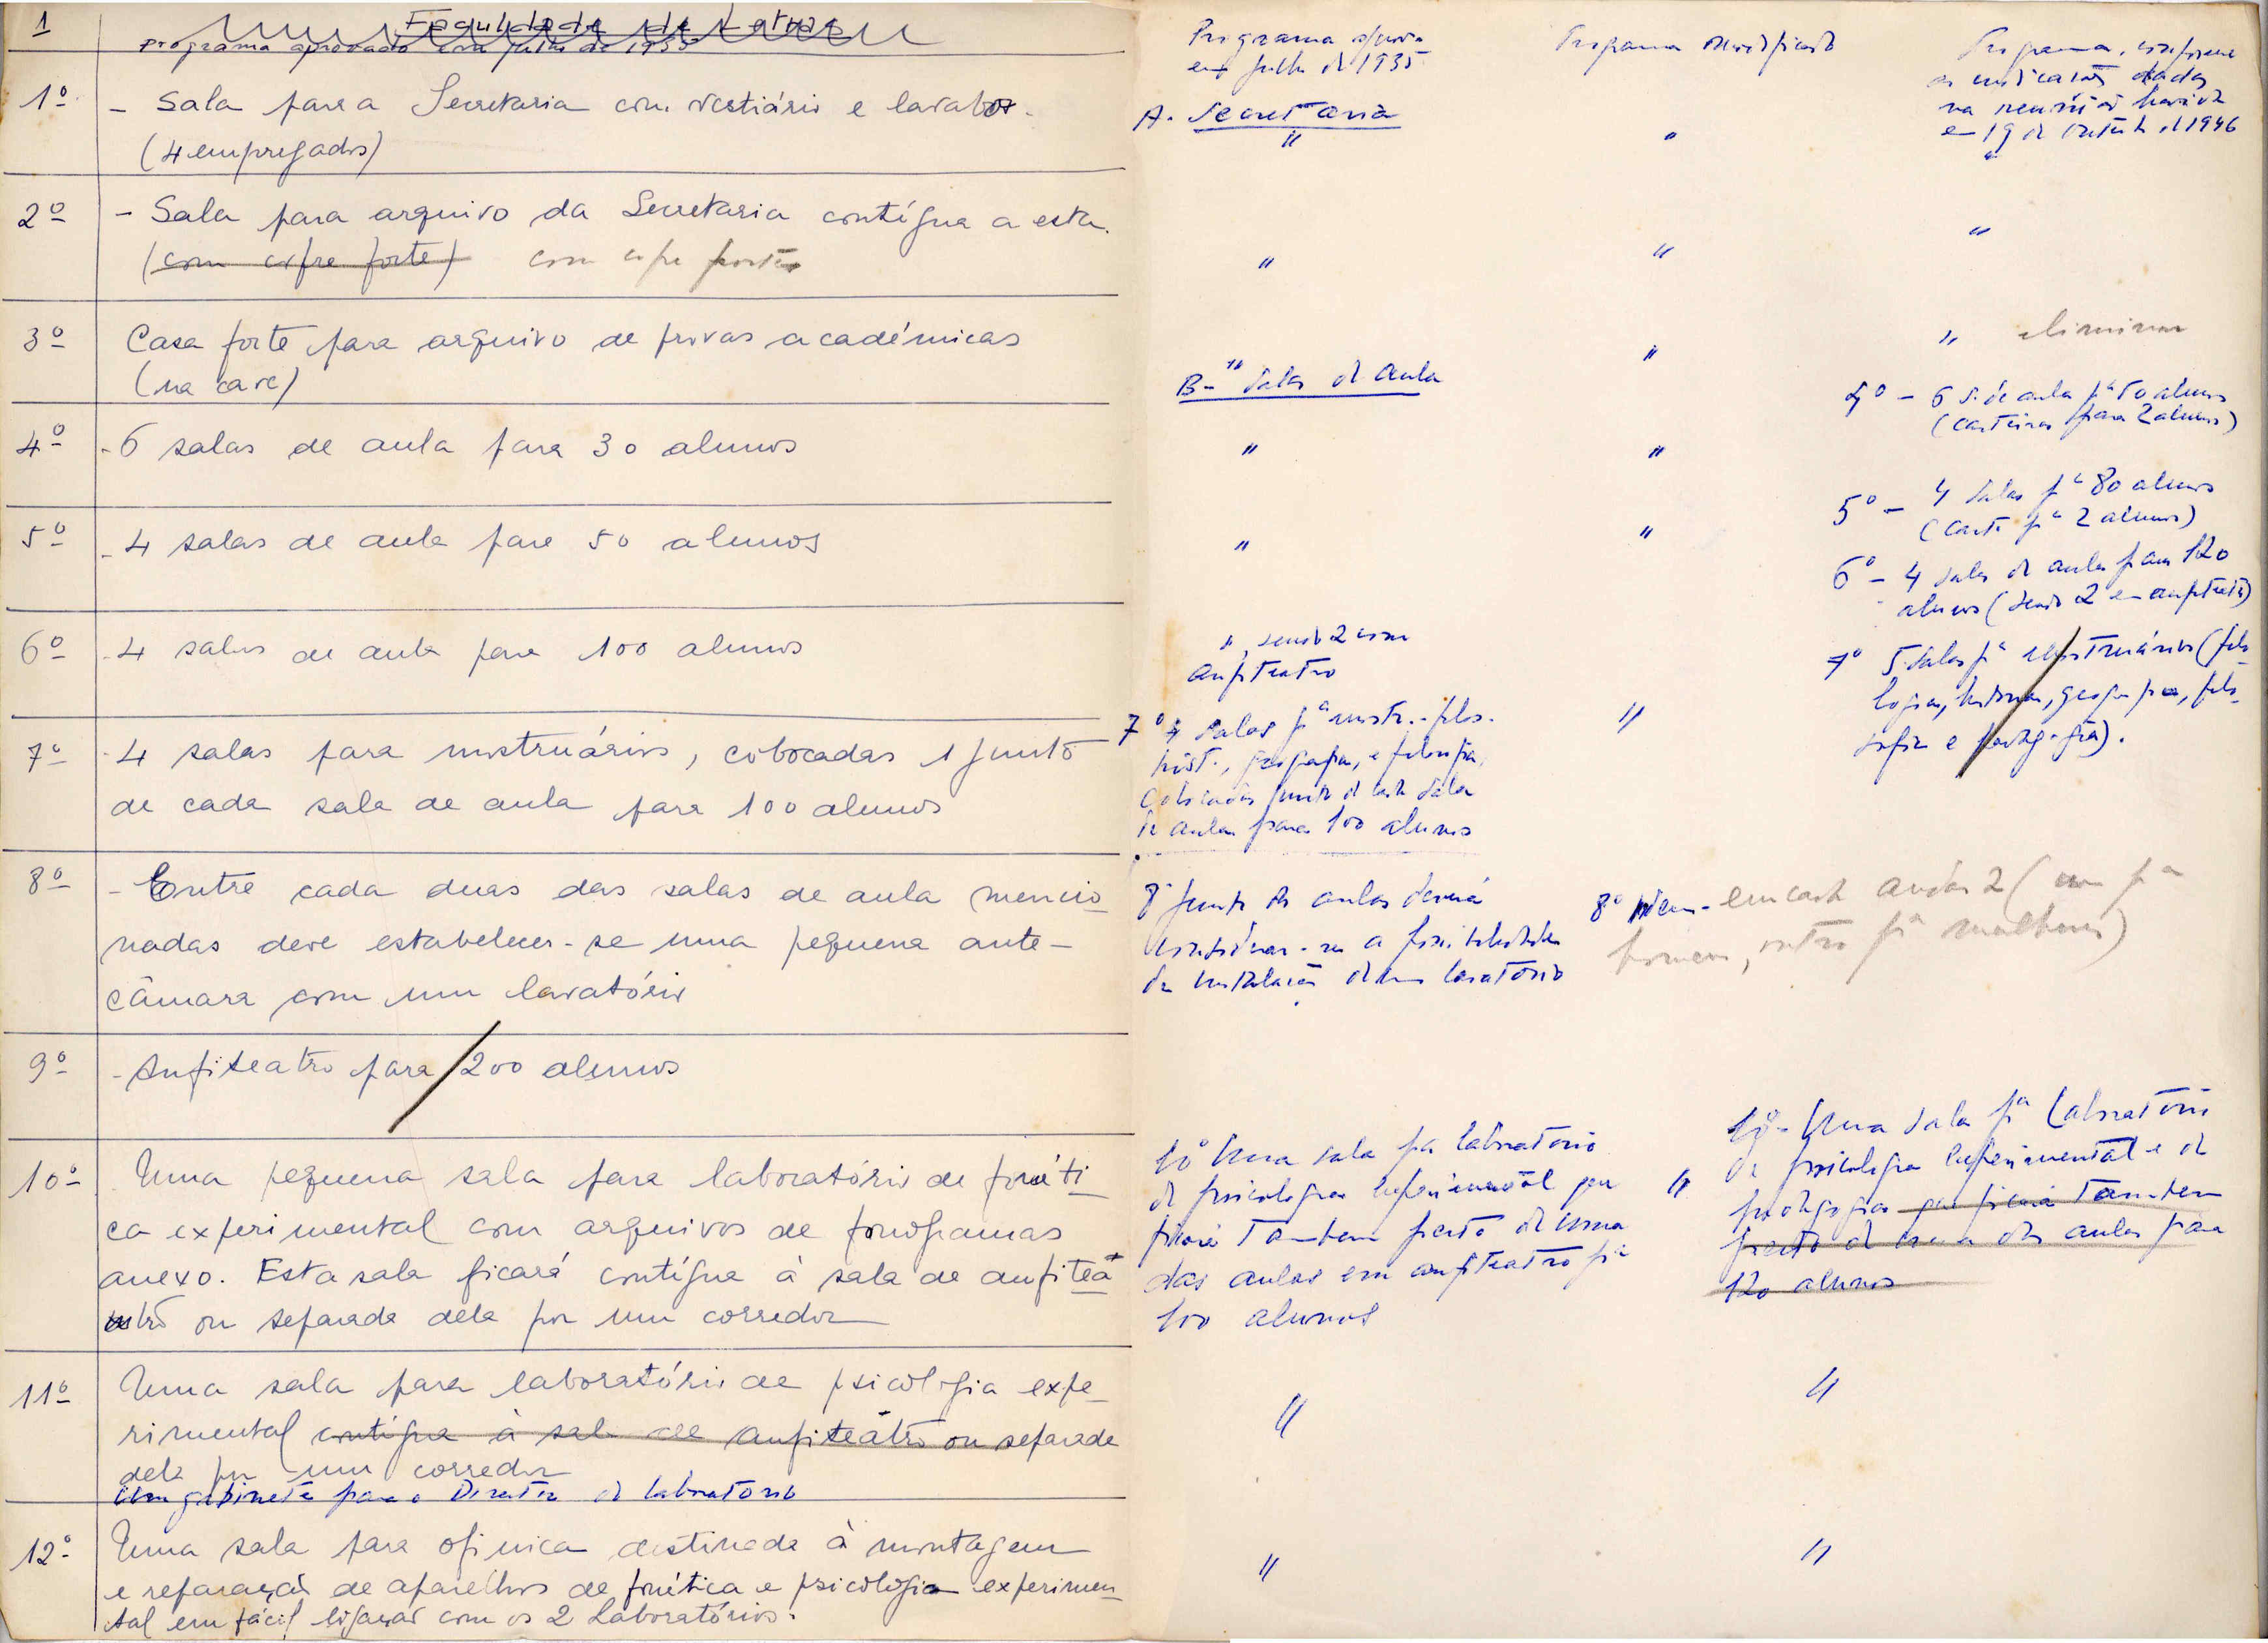 1
Faculdade de Letras
Programa aprovado em julho de 1935
1º - Sala para a Secretaria com vestiário e lavabos.
(4 empregados)
2º - Sala para arquivo da Secretaria contígua a esta.
(com cofre forte) com cofre forte
3º Casa forte para arquivo de provas académicas
(na cave)
4º - 6 salas de aula para 30 alunos
5º - 4 salas de aula para 50 alunos
6º - 4 salas de aula para 100 alunos
7º - 4 salas para mostruários, colocadas 1 junto
de cada sala de aula para 100 alunos
8º - Entre cada duas das salas de aula mencio-
nadas deve estabelecer-se uma pequena ante-
câmara com um lavatório
9º - Anfiteatro para 200 alunos
10º Uma pequena sala para laboratório de fonéti-
ca experimental com arquivos de fonogramas
anexo. Esta sala ficará contígua à sala de anfitea-
tro ou separada dela por um corredor
11º Uma sala para laboratório de psicologia expe-
rimental contígua à sala de anfiteatro ou separada
dela por um corredor
Um gabinete para o Director do laboratório
12º Uma sala para oficina destinada à montagem
e reparação de aparelhos de fonética e psicologia experimen-
tal em fácil ligação com os 2 Laboratórios.
Programa aprova
em julho de 1935
A. Secretaria
"
"
"
B - Salas de aula
"
"
", sendo 2 com
anfiteatro
7º 4 salas pª mostr. - filos.
hist., geografia, e filosofia,
colocadas junto de cada sala
de aula para 100 alunos
8º Junto das aulas deverá
considerar-se a possibilidade
da instalação de um lavatório
10º Uma sala pa laboratório
de psicologia experimental que
ficará tambem perto de uma
das aulas em anfiteatro pª
100 alunos
"
"
Programa modificado
"
"
"
"
"
"
8º idem - em cada andar 2 (um pª
homens, outro pª mulheres)
"
Programa, conforme
as indicações dadas
na reunião havida
em 19 de Outubro de 1946
"
"
" eliminar
4º - 6 s. de aula pª 50 alunos
(carteiras para 2 alunos)
5º - 4 salas pª 80 alunos
(cart. pª 2 alunos)
6º - 4 salas de aulas para 120
alunos (sendo 2 em anfiteatro)
7º 5 salas pª mostruários (filo-
logia, historia, geografia, filo-
sofia e pedagogia).
10º - Uma sala pª Laboratório
de psicologia experimental e de
pedagogia que ficará tambem
perto de uma das aulas para
120 alunos
"
"